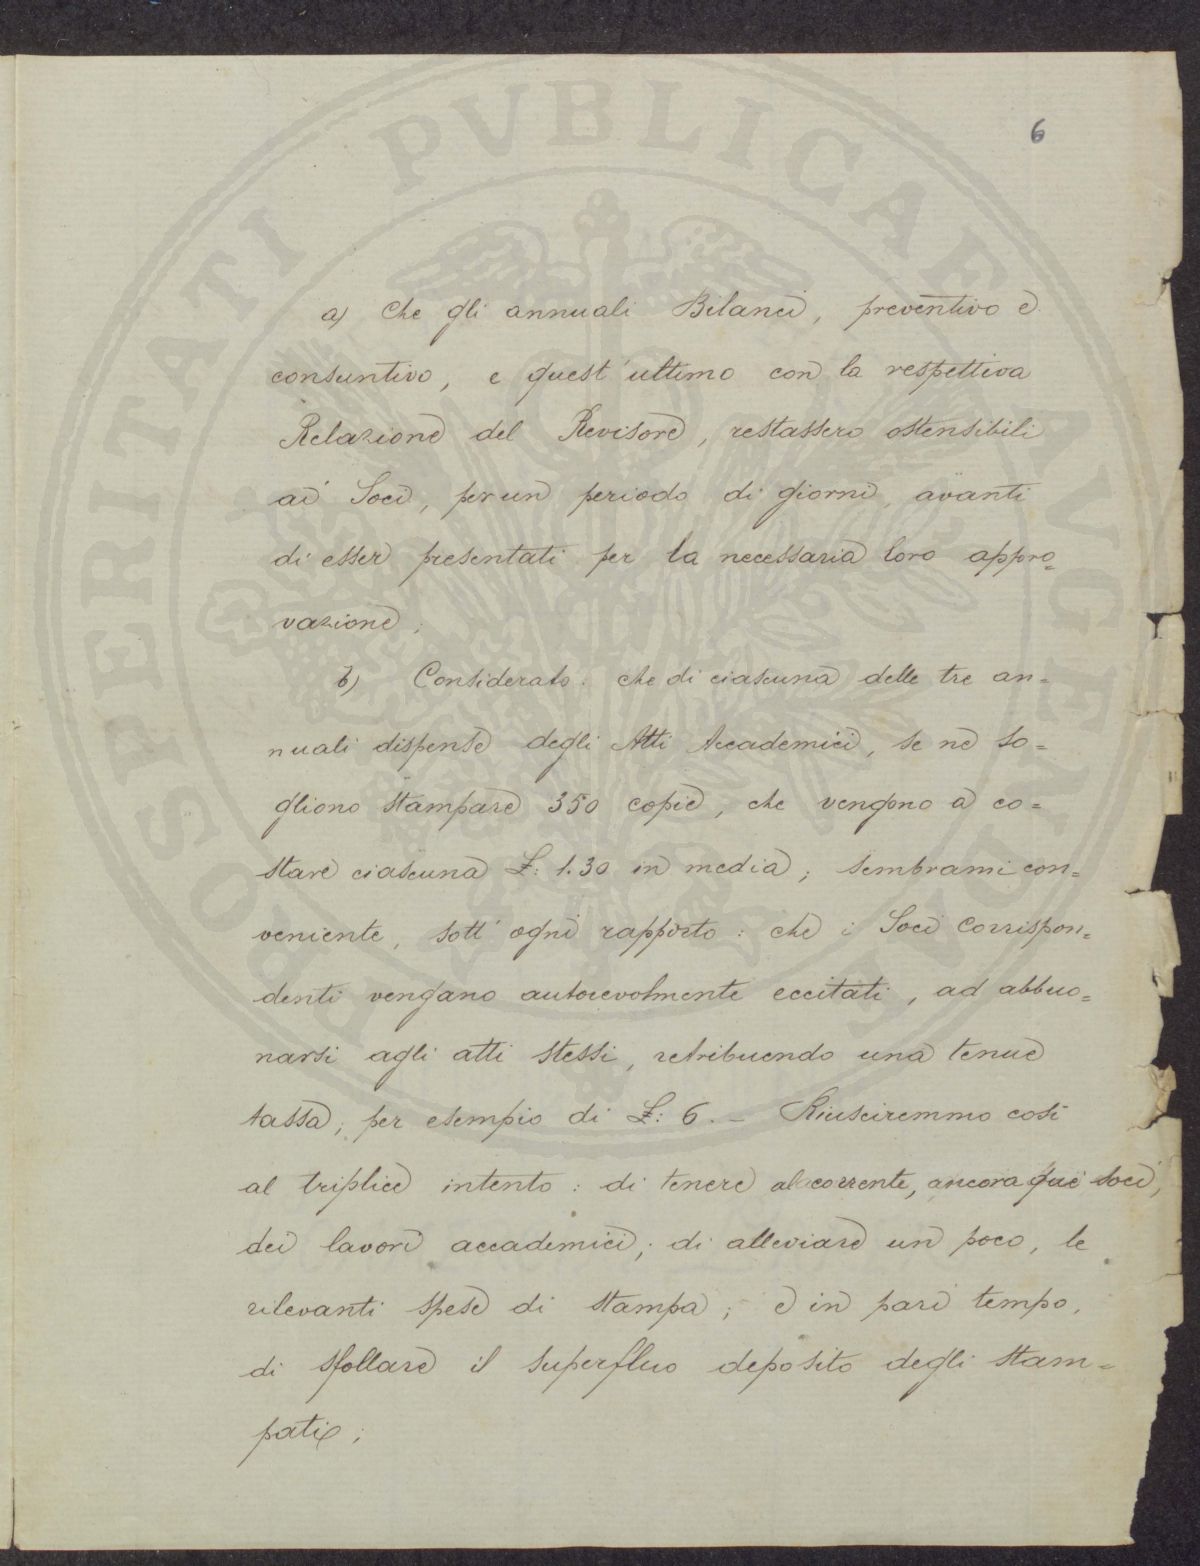 PROSPERITATI PVBLICAE AVGENDAE
6
a) Che gli annuali Bilanci, preventivo e
consuntivo, e quest'ultimo con la respettiva
Relazione del Revisore, restassero ostensibili
ai Soci, per un periodo di giorni, avanti
di esser presentati per la necessaria loro appro=
vazione;
b) Considerato: che di ciascuna delle tre an=
nuali dispense degli Atti Accademici, se ne so=
gliono stampare 350 copie, che vengono a co=
stare ciascuna £: 1.30 in media; sembrami con=
veniente, sott'ogni rapporto: che i Soci Corrispon=
denti vengano autorevolmente eccitati, ad abbuo=
narsi agli atti stessi, retribuendo una tenue
tassa; per esempio di £: 6. — Riusciremmo così
al triplice intento: di tenere al corrente, ancora que' soci,
dei lavori accademici; di alleviare un poco, le
rilevanti spese di stampa; e in pari tempo,
di sfollare il superfluo deposito degli stam=
pati;